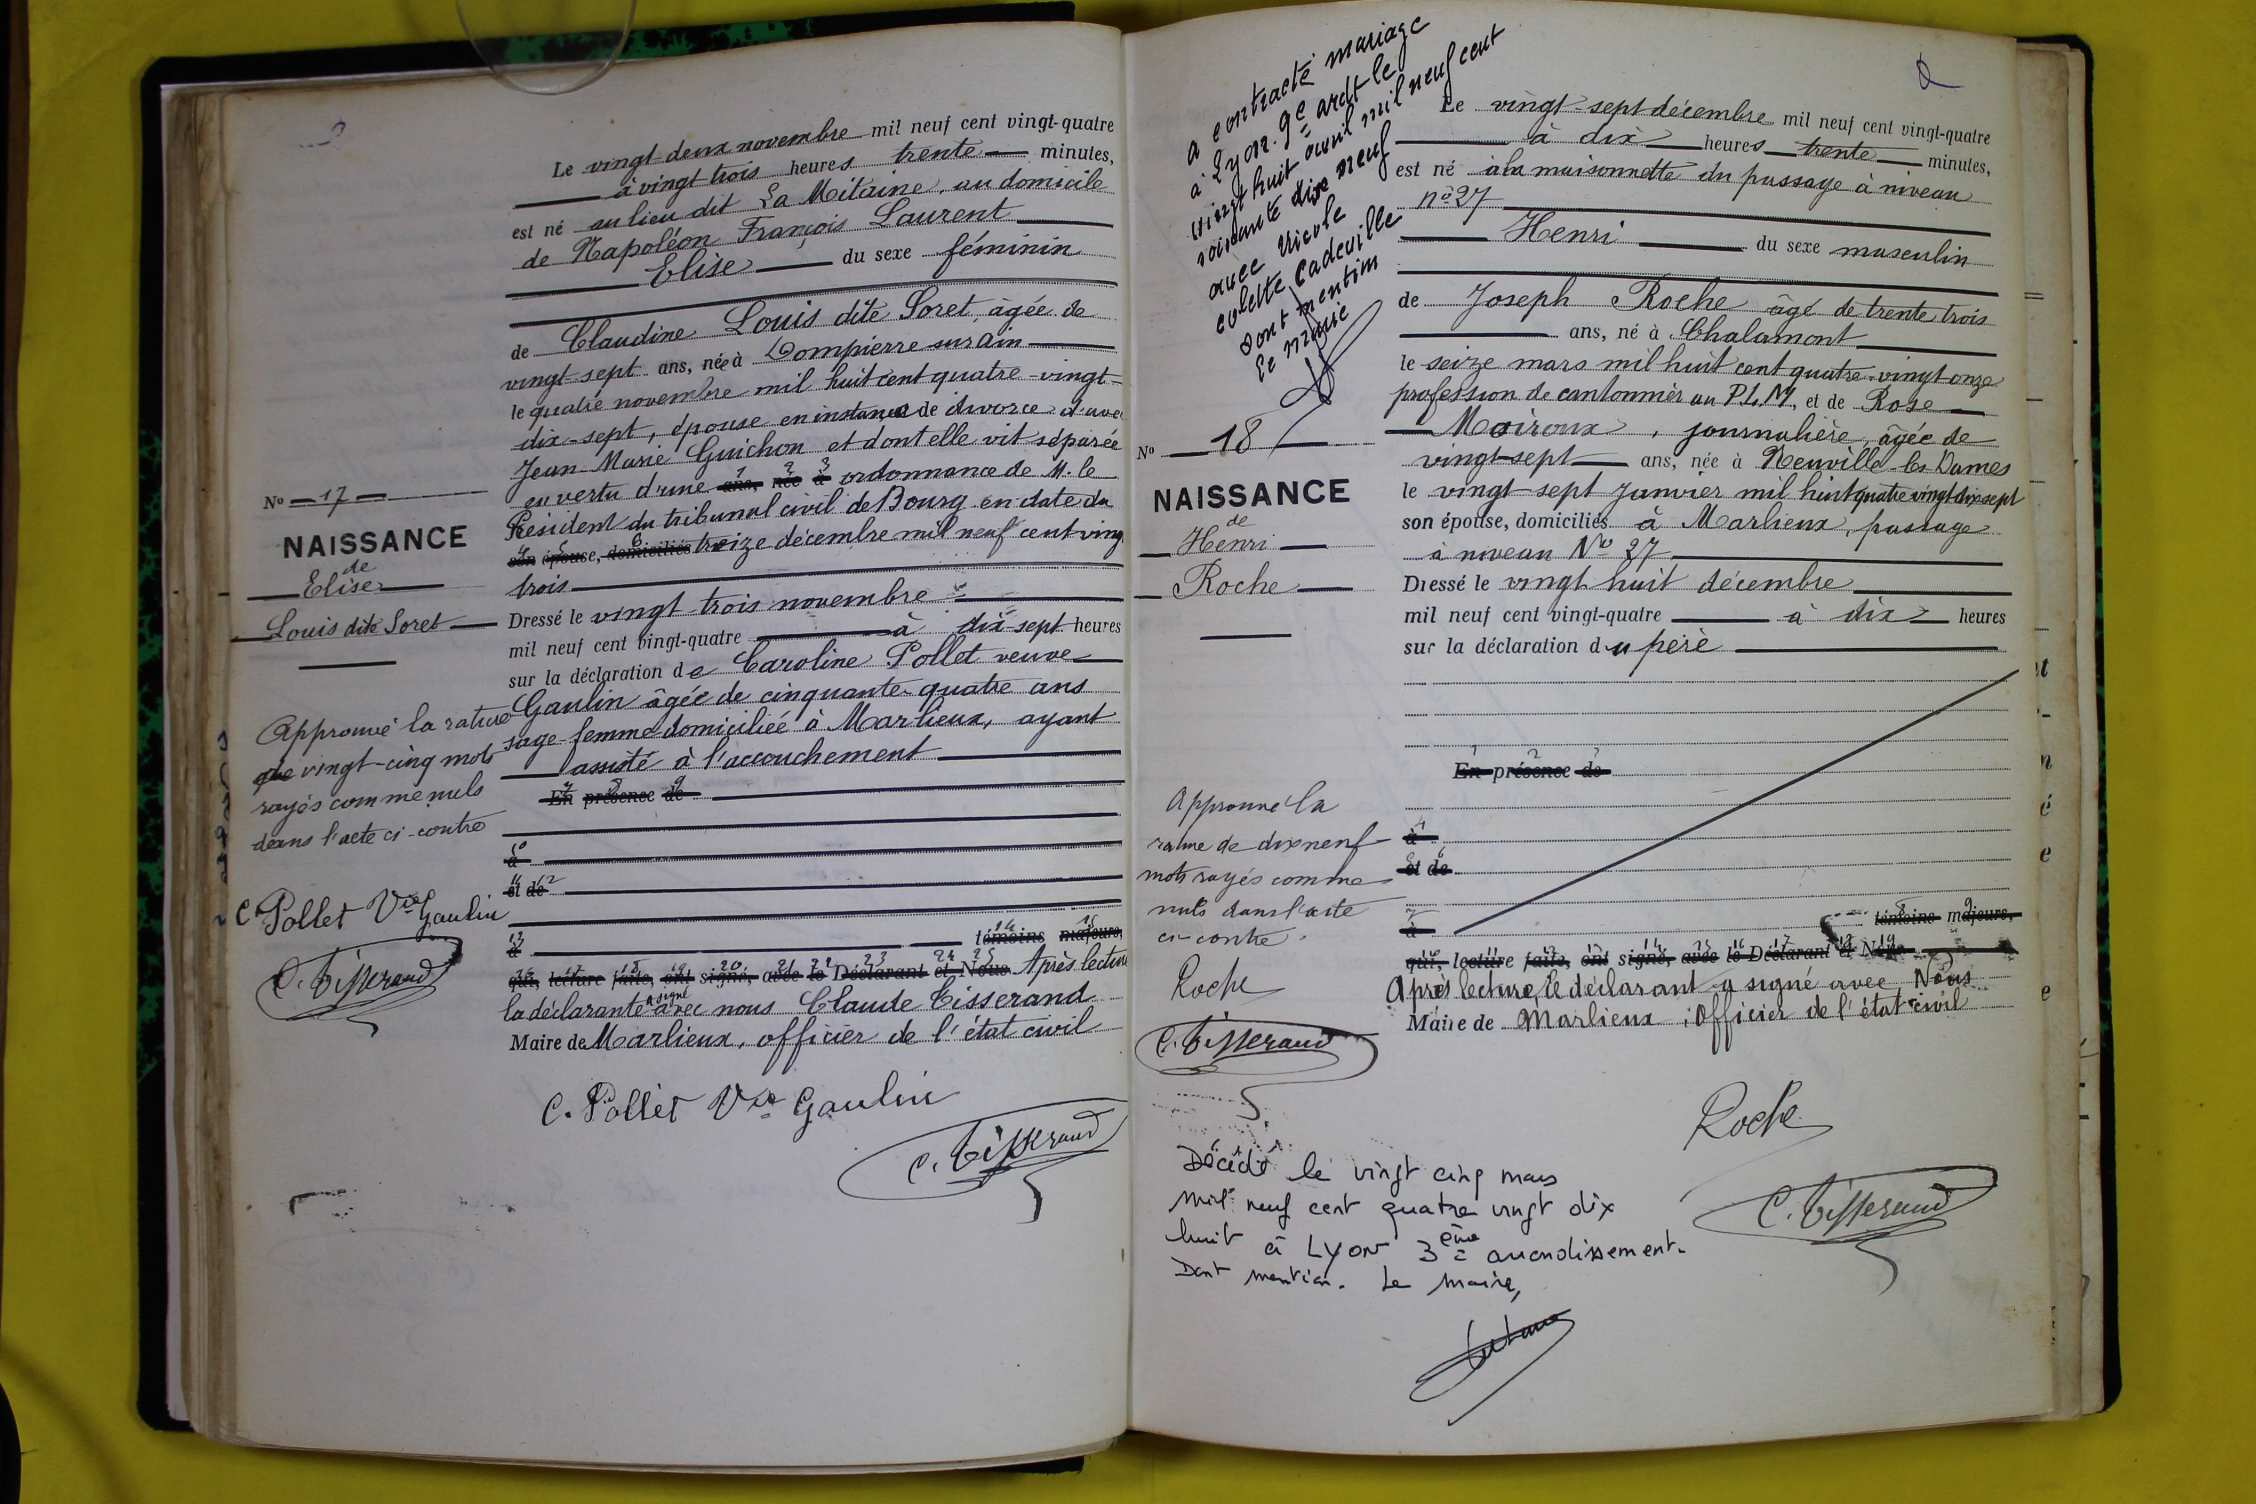 Le vingt-deux novembre mil neuf cent vingt-quatre
à vingt trois heures trente minutes,
est né au lieu dit La Mitaine, au domicile
de Napoléon François Laurent
Elise du sexe féminin
de Claudine Louis dite Soret, âgée de
vingt-sept ans, née à Dompierre sur Ain
le quatre novembre mil huit cent quatre-vingt-
dix-sept, épouse en instance de divorce d'avec
Jean Marie Guichon et dont elle vit séparée
en vertu d'une ans, née à ordonnance de M. le
Président du tribunal civil de Bourg en date du
son épouse, domiciliés treize décembre mil neuf cent vingt
trois
Dressé le vingt trois novembre
mil neuf cent vingt-quatre à dix-sept heures
sur la déclaration de Caroline Pollet veuve
Gaulin âgée de cinquante-quatre ans
sage-femme domiciliée à Marlieux, ayant
assisté à l'accouchement
En présence de
à
et de
à témoins majeurs,
qui, lecture faite, ont signé, avec le Déclarant et Nous Après lecture
la déclarante a signé avec nous Claude Tisserand
Maire de Marlieux, officier de l'état civil
C. Pollet Vve Gaulin
C. Tisserand
No 17
NAISSANCE
de
Elise
Louis dite Soret
Approuvé la rature
de vingt-cinq mots
rayés comme nuls
dans l'acte ci-contre
C. Pollet Vve Gaulin
C. Tisserand
a contracté mariage
à Lyon 9e ardt le
vingt huit avril mil neuf cent
soixante dix neuf
avec Nicole
Colette Cadeville
dont mention
Le maire
No 18
NAISSANCE
de
Henri
Roche
Approuvé la
rature de dix neuf
mots rayés comme
nuls dans l'acte
ci-contre.
Roche
C. Tisserand
Le vingt-sept décembre mil neuf cent vingt-quatre
à dix heures trente minutes,
est né à la maisonnette du passage à niveau
no 27
Henri du sexe masculin
de Joseph Roche âgé de trente trois
ans, né à Chalamont
le seize mars mil huit cent quatre-vingt onze
profession de cantonnier au P.L.M, et de Rose
Moiroux, journalière, âgée de
vingt-sept ans, née à Neuville les Dames
le vingt-sept Janvier mil huit quatre vingt dix sept
son épouse, domiciliés à Marlieux, passage
à niveau No 27
Dressé le vingt huit décembre
mil neuf cent vingt-quatre à dix heures
sur la déclaration du père
En présence de
à
et de
à témoins majeurs,
qui, lecture faite, ont signé, avec le Déclarant et Nous
Après lecture, le déclarant a signé avec Nous
Maire de Marlieux, Officier de l'état-civil
Roche
C. Tisserand
Décédé le vingt cinq mars
mil neuf cent quatre vingt dix
huit à Lyon 3ème arrondissement.
Dont mention. Le Maire,